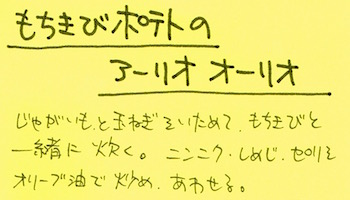 もちきびポテトの
アーリオ オーリオ
じゃがいもと玉ねぎをいためて、もちきびと
一緒に炊く。ニンニク・しめじ・セロリを
オリーブ油で炒め、あわせる。